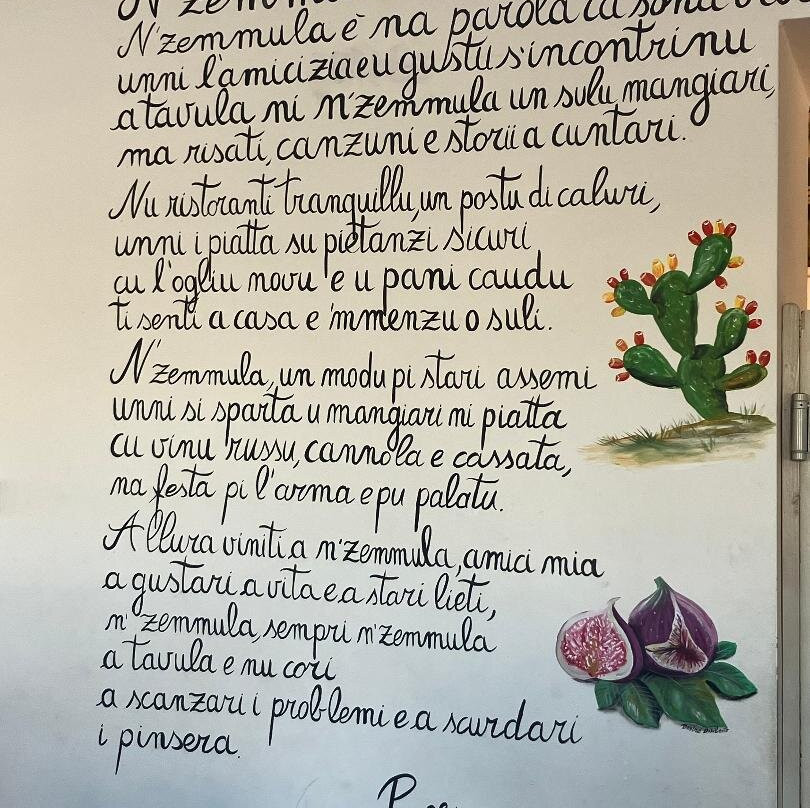 N'zemmula è na parola ca sona
unni l'amicizia e u gustu s'incontrinu
a tavula ni n'zemmula un sulu mangiari,
ma risati, canzuni e storii a cuntari.
Nu ristoranti tranquillu, un postu di caluri,
unni i piatta su pietanzi sicuri
cu l'ogliu novu e u pani caudu
ti senti a casa e 'mmenzu o suli.
N'zemmula, un modu pi stari assemi
unni si sparta u mangiari ni piatta
cu vinu russu, cannola e cassata,
na festa pi l'arma e pu palatu.
Allura viniti a n'zemmula, amici mia
a gustari a vita e a stari lieti,
n'zemmula, sempri n'zemmula
a tavula e nu cori
a scanzari i problemi e a scurdari
i pinsera.